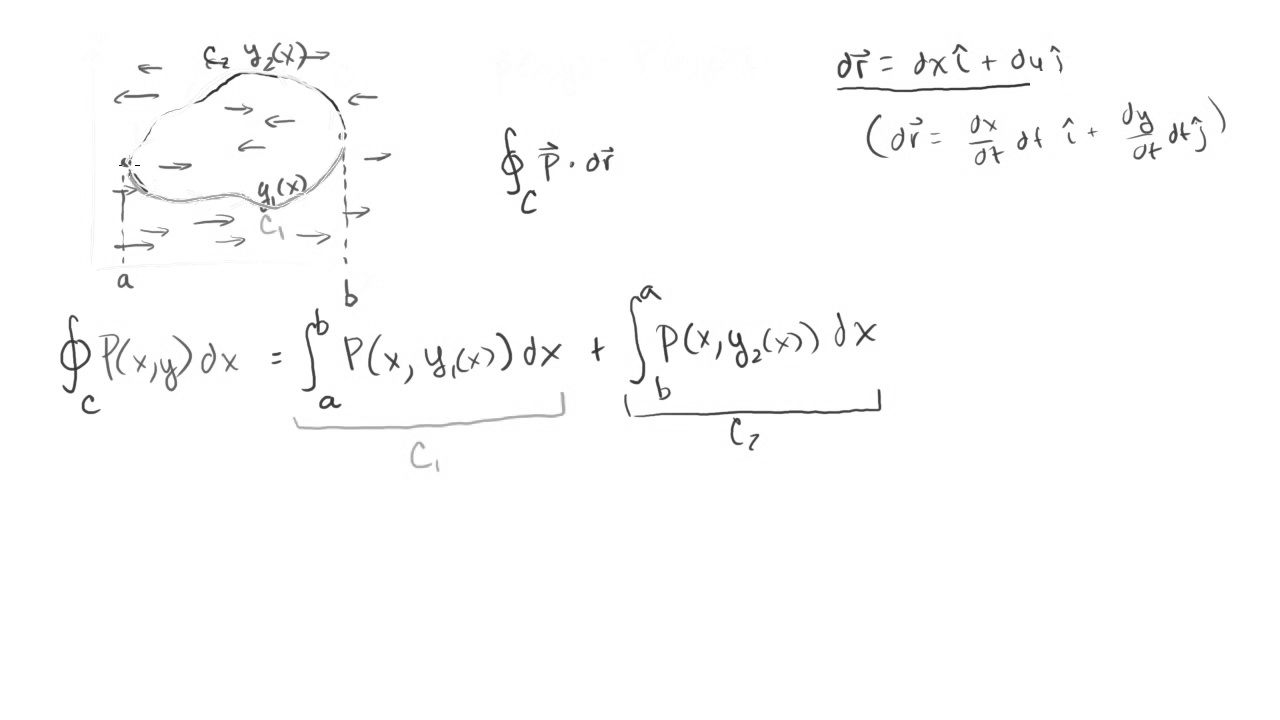 C₂ y₂(x)
y₁(x)
C₁
a
b
dr⃗ = dx î + dy ĵ
(dr⃗ = dx/dt dt î + dy/dt dt ĵ)
∮_C P⃗ · dr⃗
∮_C P(x,y) dx = ∫_a^b P(x, y₁(x)) dx + ∫_b^a P(x, y₂(x)) dx
C₁
C₂